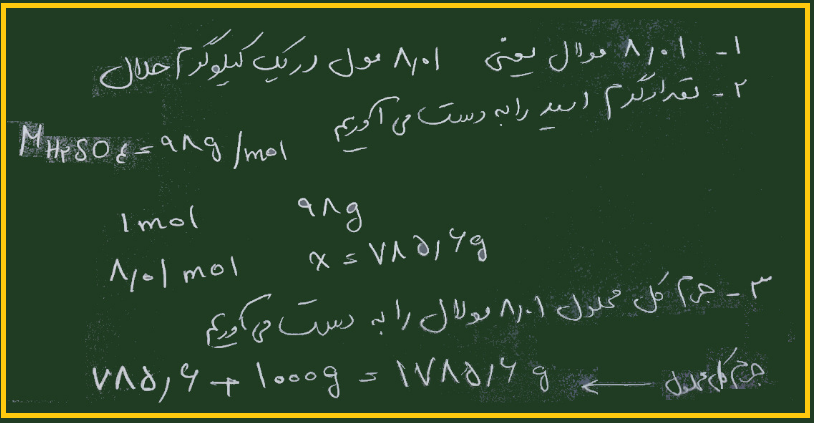 ۱- ۸٫۰۱ مولال یعنی ۸٫۰۱ مول در یک کیلوگرم حلال
۲- تعداد گرم اسید را به دست می آوریم
M H۲SO۴ = ۹۸g/mol
۱mol ۹۸g
۸٫۰۱ mol x = ۷۸۵٫۶g
۳- جرم کل محلول ۸٫۰۱ مولال را به دست می آوریم
۷۸۵٫۶ + ۱۰۰۰g = ۱۷۸۵٫۶ g ← جرم کل محلول